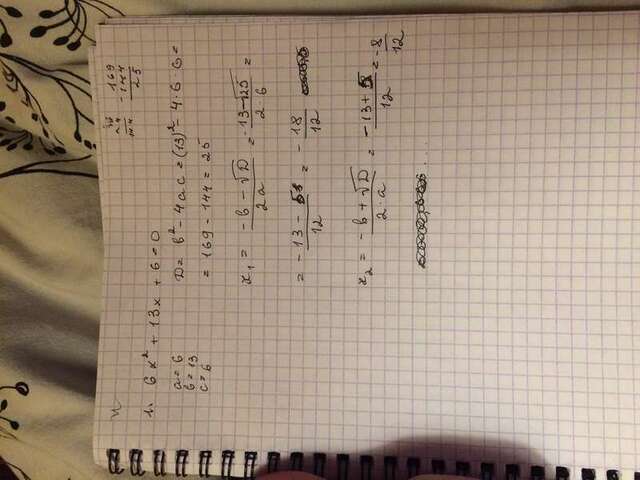 169
- 144
25
1. 6x² + 13x + 6 = 0
a = 6
b = 13
c = 6
D = b² - 4ac = (13)² - 4·6·6 =
= 169 - 144 = 25
x₁ = (-b - √D)/(2a) = (-13 - √25)/(2·6) =
= (-13 - 5)/12 = -18/12
x₂ = (-b + √D)/(2·a) = (-13 + 5)/12 = -8/12